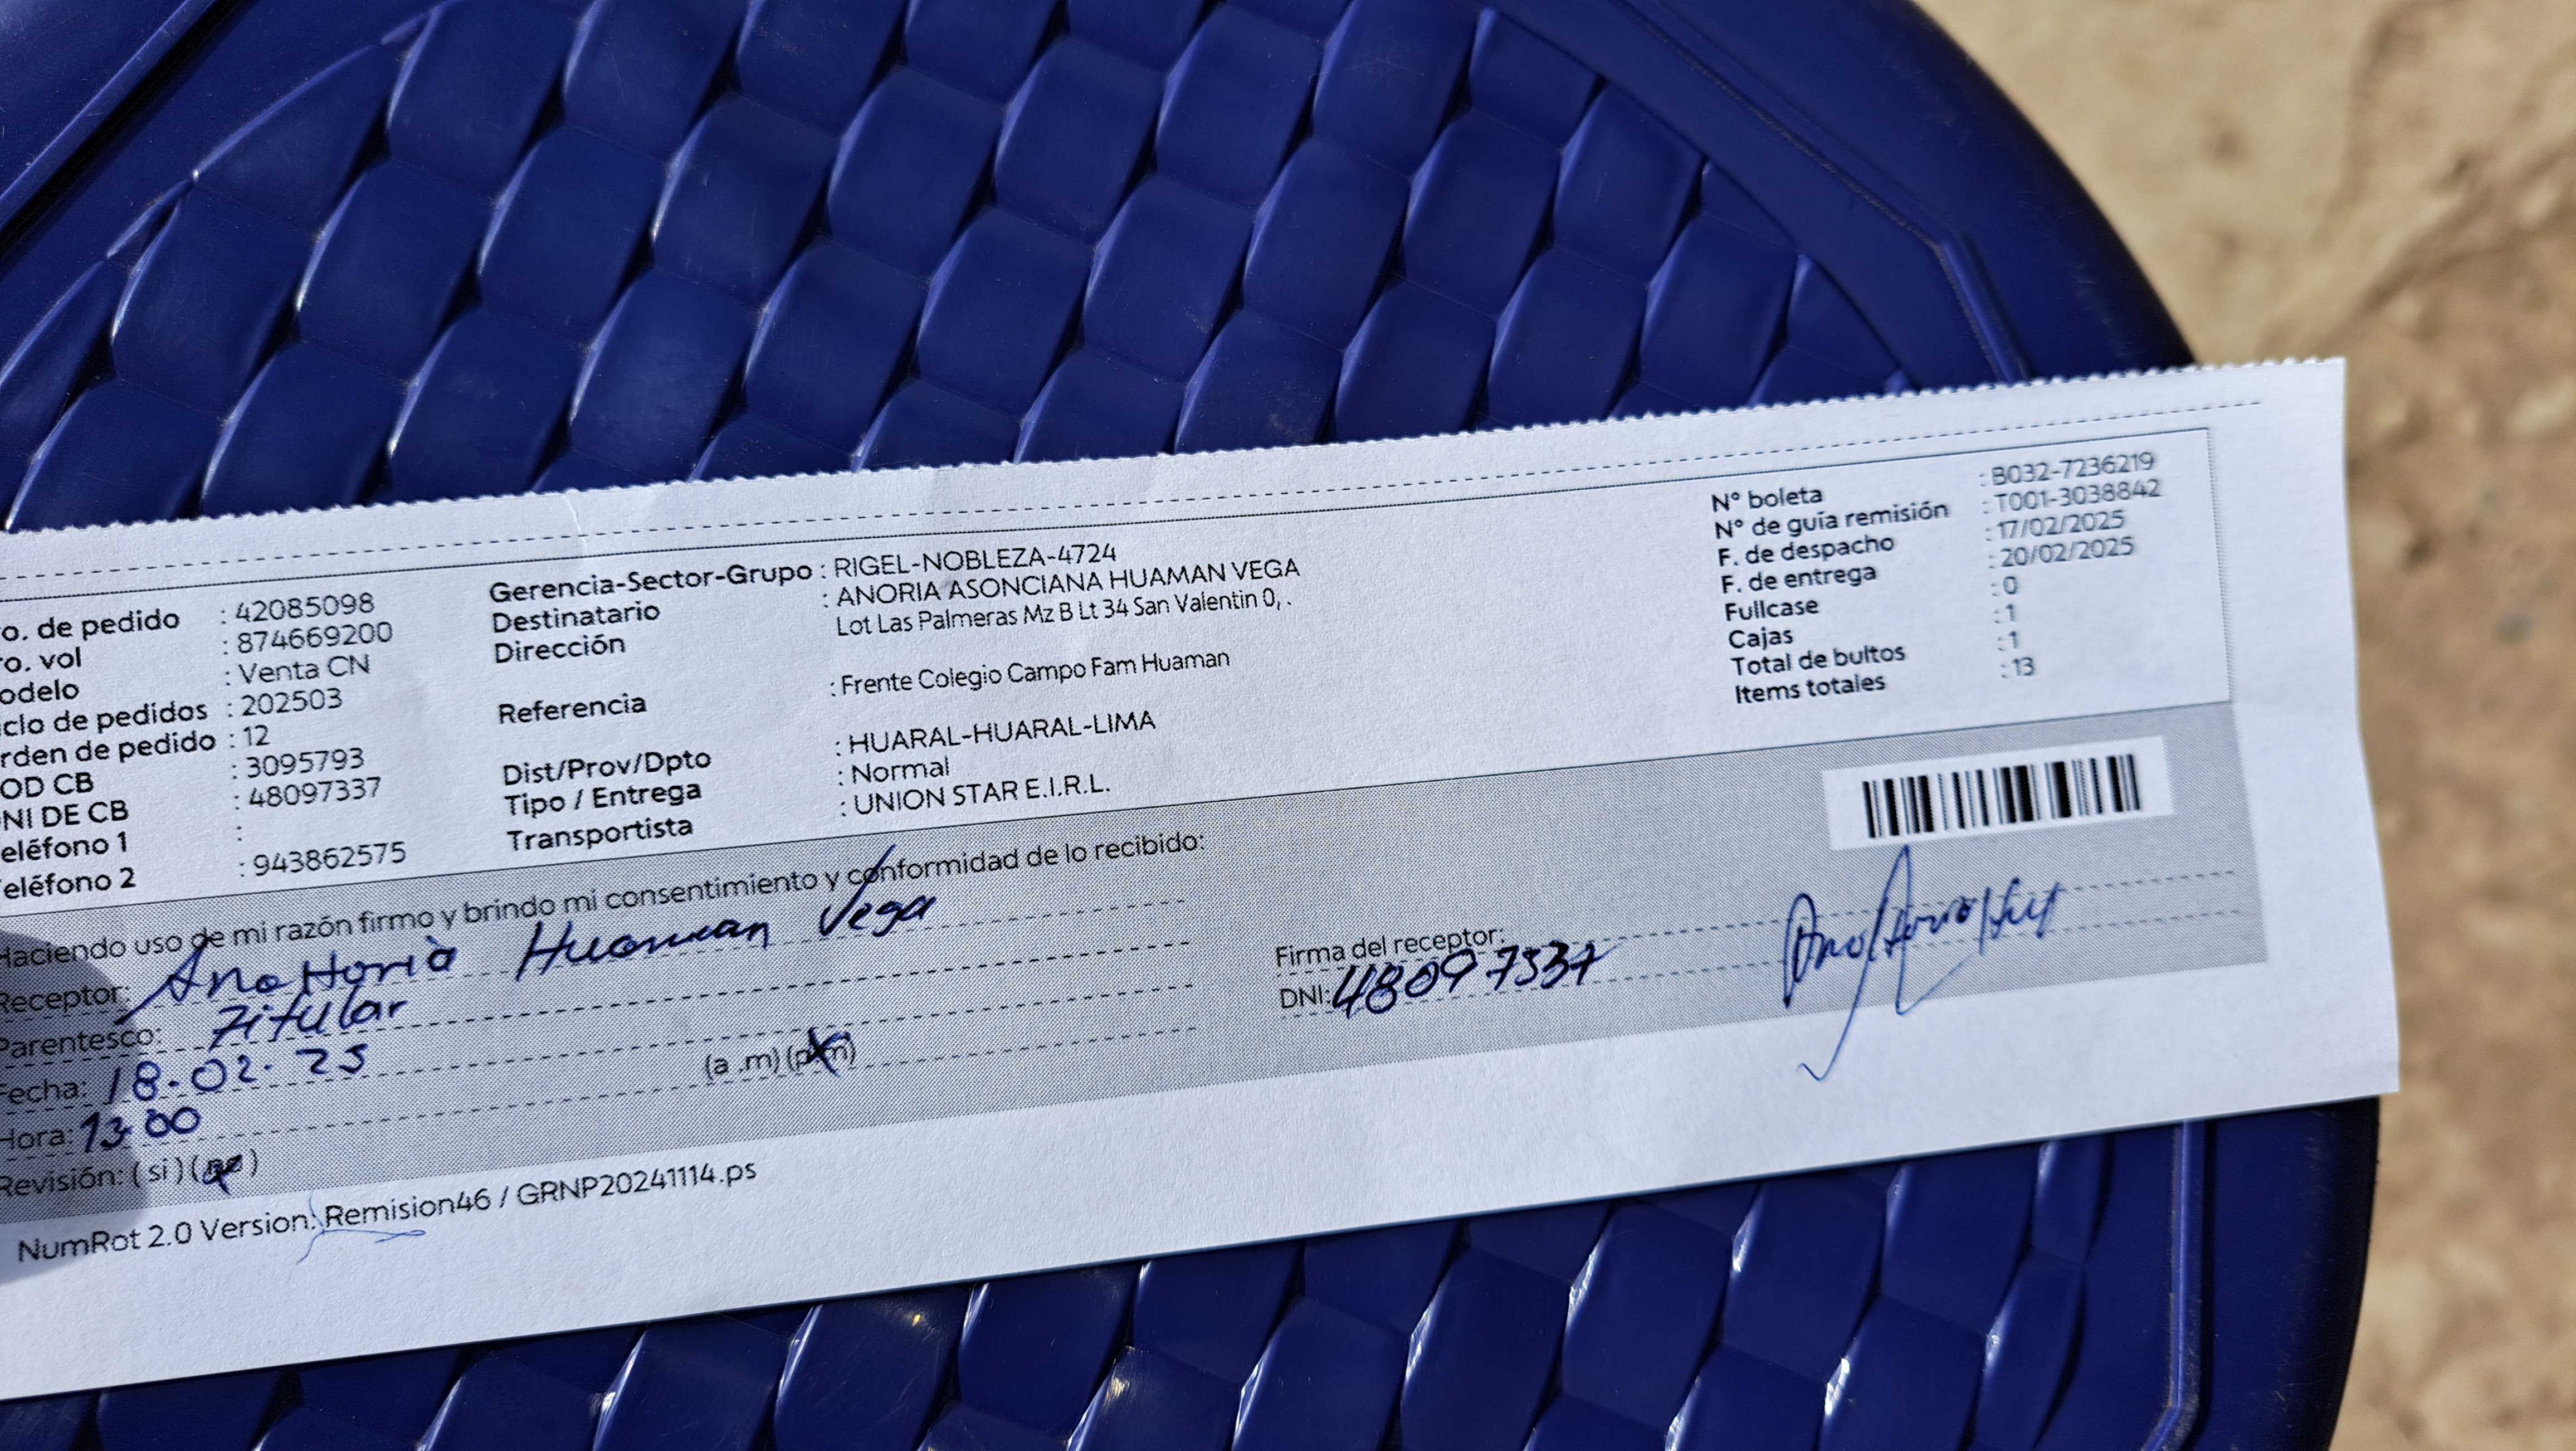 o. de pedido : 42085098
o. vol : 874669200
odelo : Venta CN
clo de pedidos : 202503
rden de pedido : 12
OD CB : 3095793
NI DE CB : 48097337
eléfono 1 :
eléfono 2 : 943862575
Gerencia-Sector-Grupo : RIGEL-NOBLEZA-4724
Destinatario : ANORIA ASONCIANA HUAMAN VEGA
Dirección Lot Las Palmeras Mz B Lt 34 San Valentin 0, .
Referencia : Frente Colegio Campo Fam Huaman
Dist/Prov/Dpto : HUARAL-HUARAL-LIMA
Tipo / Entrega : Normal
Transportista : UNION STAR E.I.R.L.
N° boleta : B032-7236219
N° de guía remisión : T001-3038842
F. de despacho : 17/02/2025
F. de entrega : 20/02/2025
Fullcase : 0
Cajas : 1
Total de bultos : 1
Items totales : 13
Haciendo uso de mi razón firmo y brindo mi consentimiento y conformidad de lo recibido:
Receptor: Huaman Vega
Parentesco: Titular
Fecha: 18-02-25
Hora: 13:00 (a .m) (p.m)
Revisión: ( si ) ( no )
Firma del receptor:
DNI: 48097537
NumRot 2.0 Version: Remision46 / GRNP20241114.ps